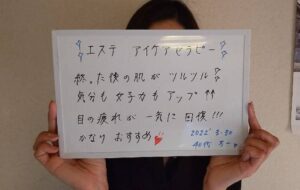 エステ アイケアセラピー
終った後の肌がツルツル
気分も女子力もアップ↑↑
目の疲れが一気に回復!!!
かなりおすすめ
2022.3.30
40代